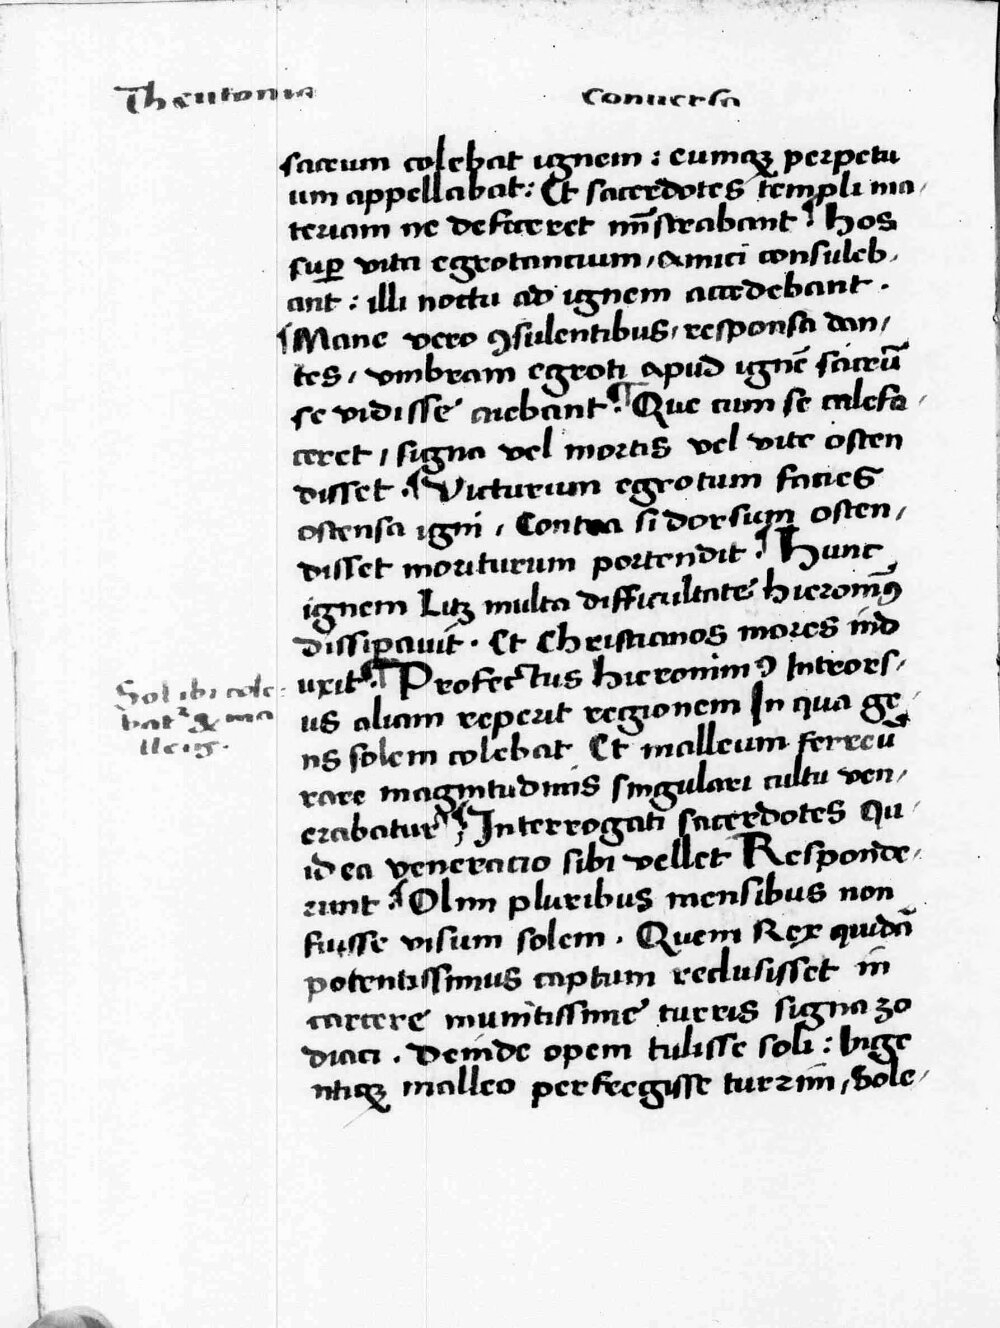 Theutonia
Conuersa
sacrum colebat ignem : eumqꝫ perpetu
um appellabat : Et sacerdotes templi ma,
teriam ne deficeret mīstrabant ¶ hos
suꝑ vita egrotantium, amici consuleb,
ant : illi noctu ad ignem accedebant .
¶ Mane vero ꝯsulentibus, responsa dan,
tes, vmbram egroti apud ignē sacrū
se vidisse aiebant ¶ Que cum se calefa,
ceret, signa vel mortis vel vite osten
disset . ¶ Victurum egrotum facies
ostensa igni, Contra si dorsum osten,
disset moriturum portendit ¶ Hunc
ignem Litꝫ multa difficultate hieromꝰ
dissipauit . Et Christianos mores ind
uxit ¶ Profectus hieronimꝰ Intrors,
us aliam reperit regionem In qua ge,
ns solem colebat Et malleum ferreū
rare magnitudinis singulari cultu ven,
erabatur ¶ Interrogati sacerdotes Qu
id ea veneracio sibi vellet Responde,
runt ¶ Olim pluribus mensibus non
fuisse visum solem . Quem Rex quidā
potentissimus captum reclusisset in
carcere munitissime turris signa zo
diaci . Deinde opem tulisse soli : Inge
ntiqꝫ malleo perfregisse turrim, Sole,
Sol ibi cole-
batʳ & ma
lleus.